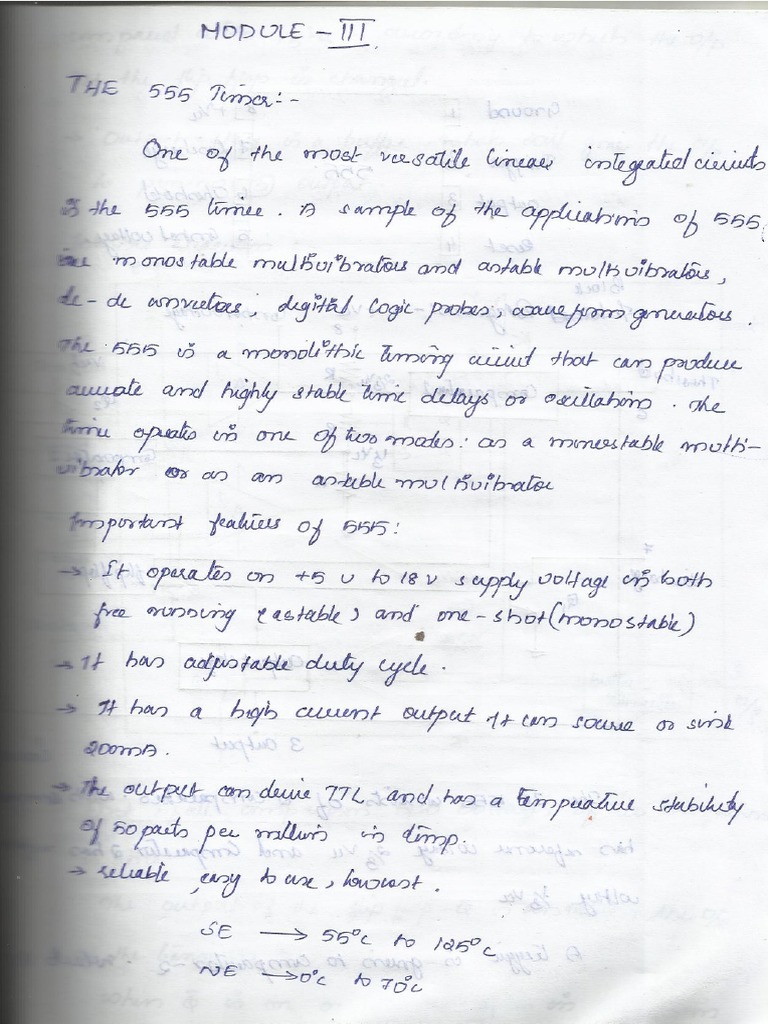 MODULE - III
THE 555 Timer:-
One of the most versatile linear integrated circuits
is the 555 timer. A sample of the applications of 555
are monostable multivibrators and astable multivibrators,
dc-dc converters, digital logic probes, waveform generators.
The 555 is a monolithic timing circuit that can produce
accurate and highly stable time delays or oscillations. The
time operates in one of two modes: as a monostable multi-
vibrator or as an astable multivibrator
Important features of 555:
→ It operates on +5 v to 18 v supply voltage in both
free running (astable) and one-shot (monostable)
→ It has adjustable duty cycle.
→ It has a high current output It can source or sink
200mA.
→ The output can drive TTL and has a temperature stability
of 50 parts per million in temp.
→ reliable, easy to use, lowcost.
SE → 55°C to 125°C
NE → 0°C to 70°C